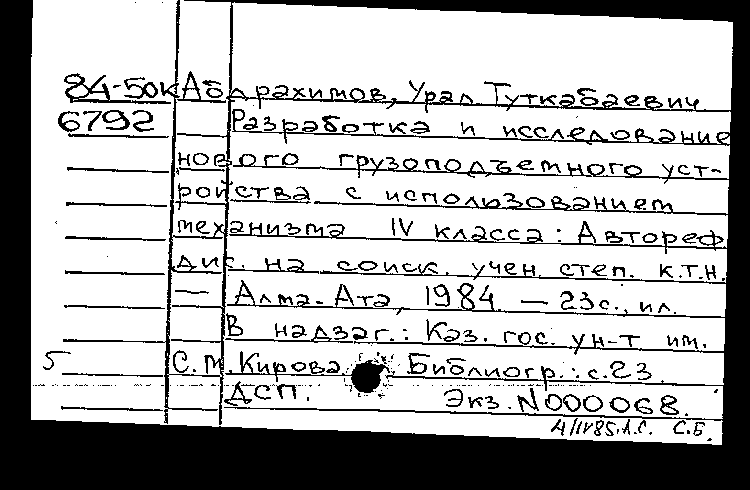 84-50к Абдрахимов, Урал Туткабаевич
6792 Разработка и исследование
нового грузоподъемного уст-
ройства с использованием
механизма IV класса : Автореф
дис. на соиск. учен степ. к.т.н.
— Алма-Ата, 1984. — 23с., ил.
В надзаг.: Каз. гос. ун-т им.
5 С.М.Кирова. Библиогр.: с.23.
ДСП. Экз. N000068.
4/IV85.Л.С. С.Б.